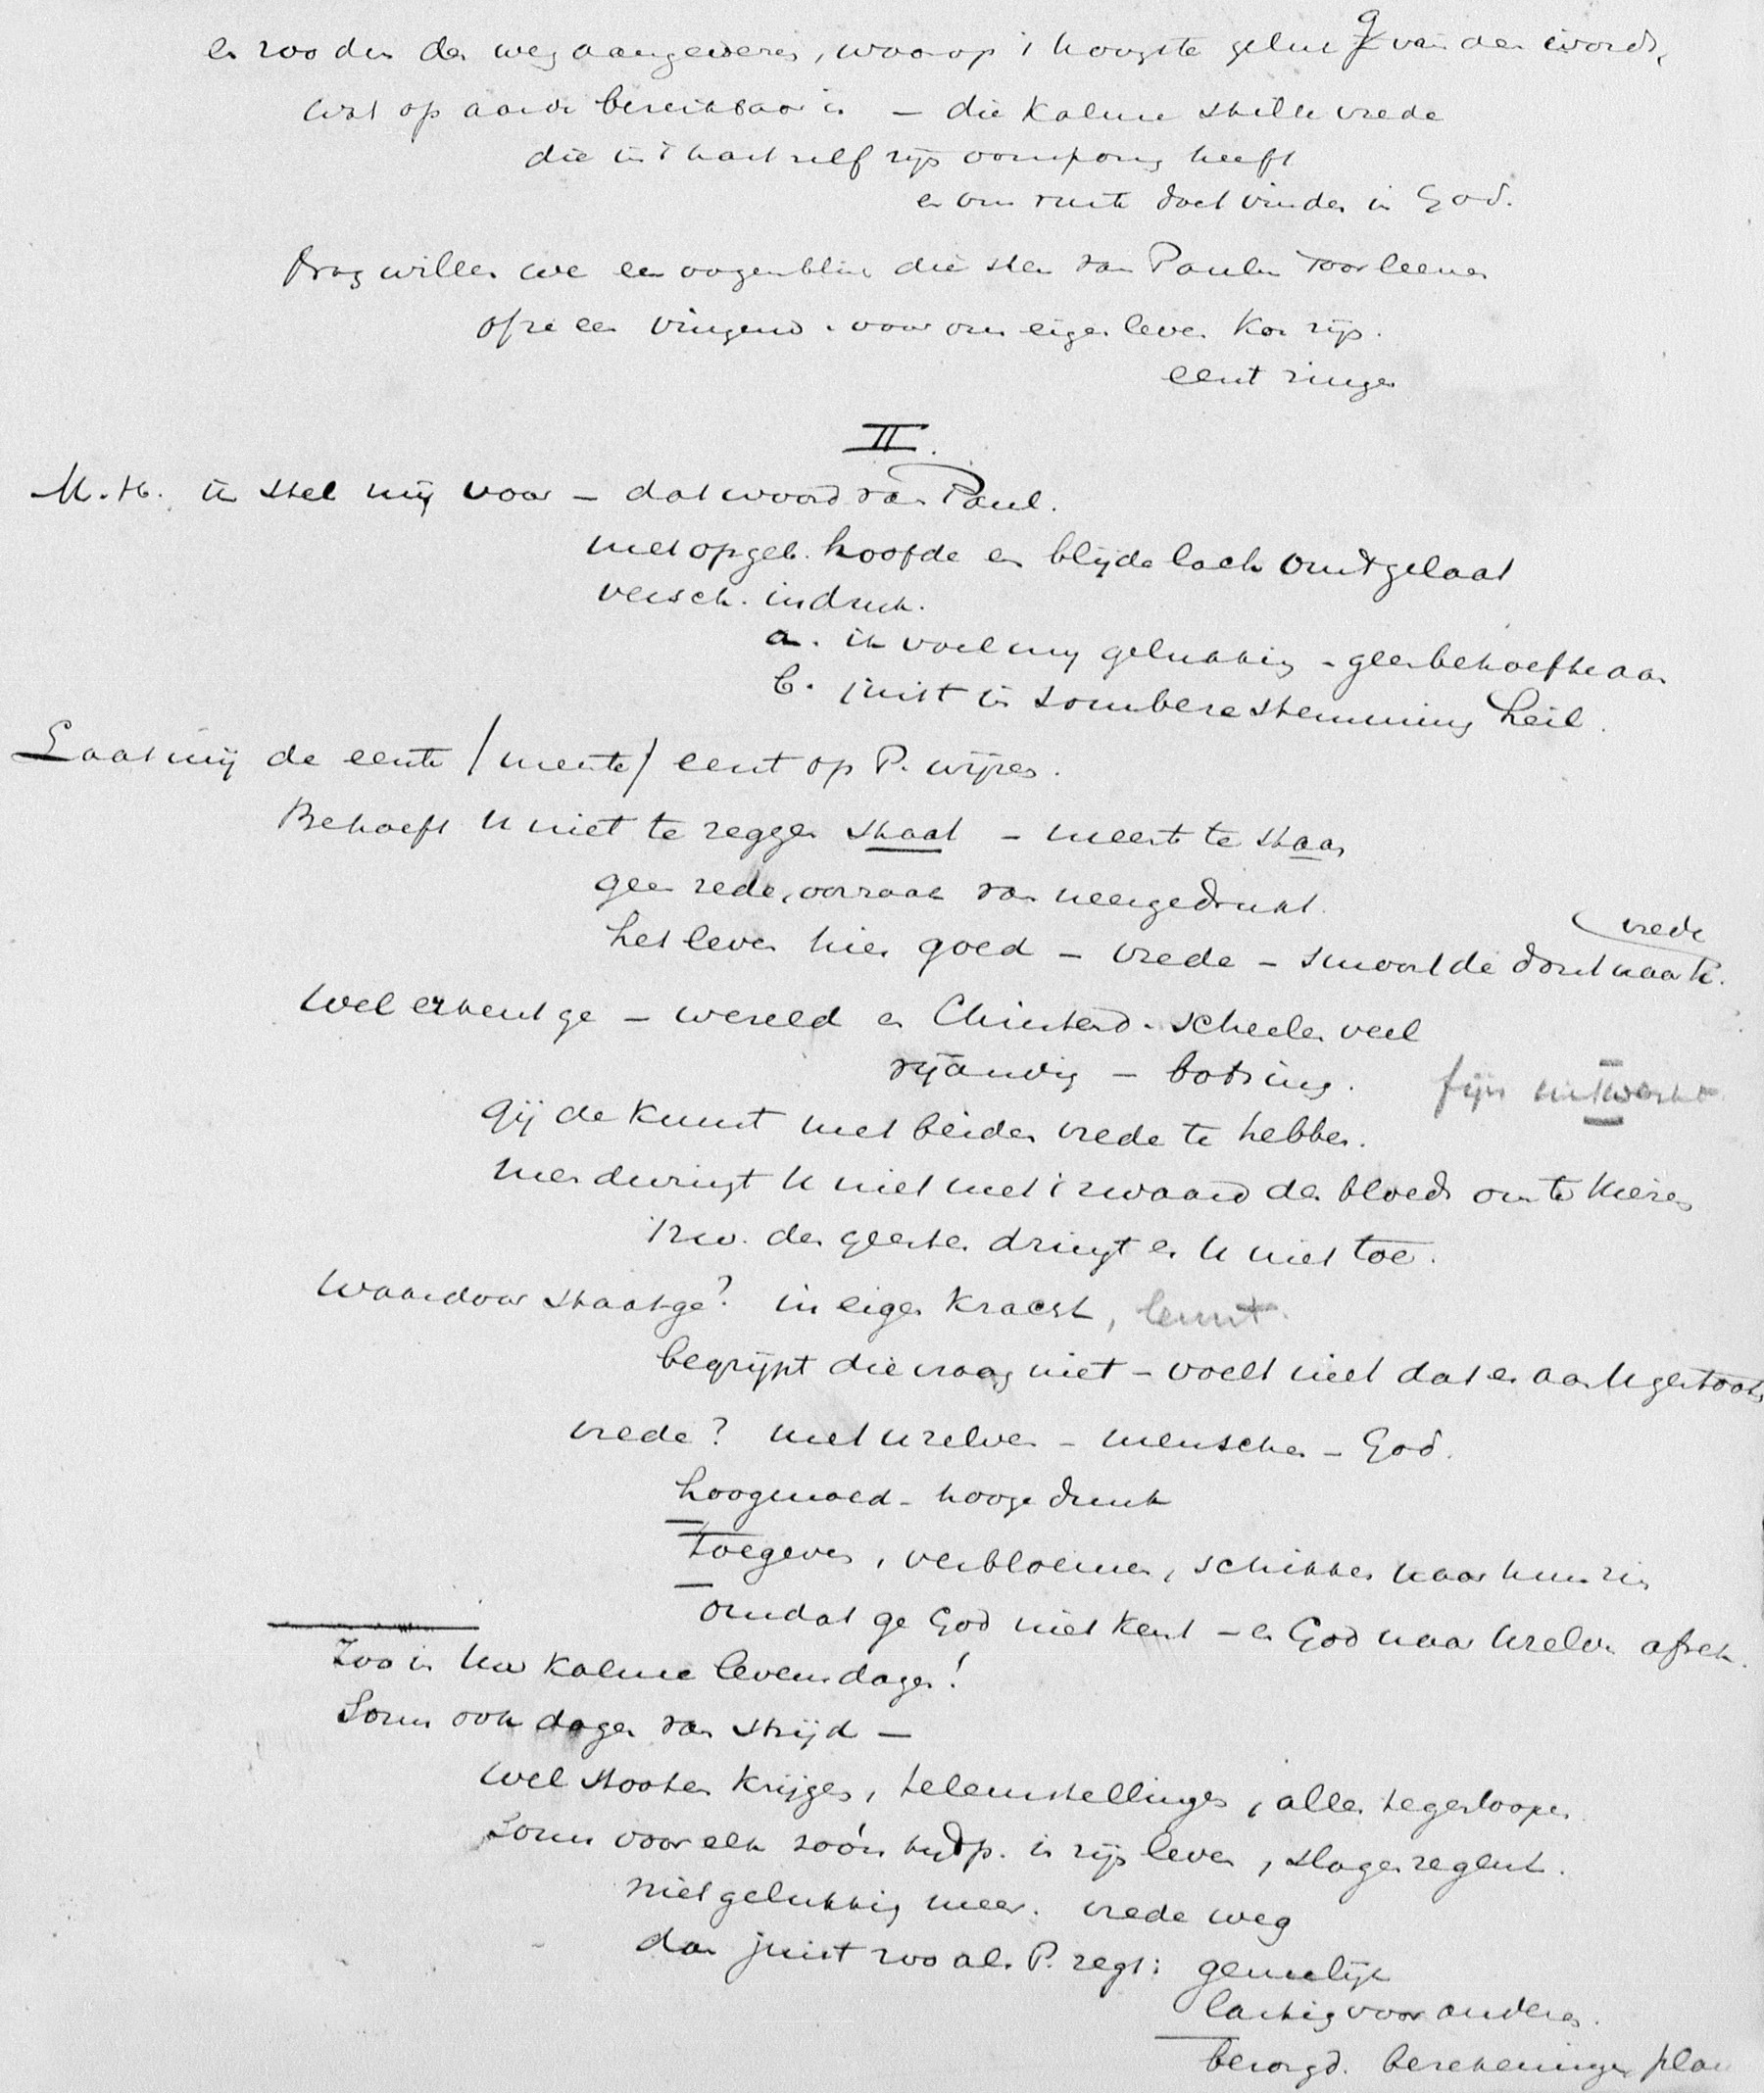 en zoo den weg aangewezen, waarop 't hoogste geluk gevonden wordt,
wat op aarde bereikbaar is — die kalme stille vrede
die in 't hart zelf zijn oorsprong heeft
en ons rust doet vinden in God.
Nog willen we een oogenblik die stem van Paulus voorleenen
of ze een vingerw. voor ons eigen leven kon zijn.
eerst zingen
II.
M. H. ik stel mij voor — dat woord van Paul.
met opgeh. hoofde en blijde lach om 't gelaat
versch. indruk.
a. ik voel mij gelukkig - geen behoefte aan
b. juist in sombere stemming heil.
Laat mij de eerste / meeste / eerst op P. wijzen.
Behoeft U niet te zeggen staat — meent te staan
geen rede, oorzaak van neergedrukt.
het leven hier goed — vrede — smaalde
vrede
Wel erkent ge — wereld en Christend. scheelen veel
vijandig — botsing.
fijn uitwerken
Gij de kunst met beiden vrede te hebben.
Men dwingt U niet met 't zwaard des bloeds om te kiezen
't zw. des geestes dringt er U niet toe.
Waardoor staat ge? in eigen kracht,
begrijpt die vraag niet — voelt niet dat er aan U
vrede? met Uzelven — menschen — God.
hoogmoed — hooge dunk
toegeven, verbloemen, schikken naar hun zin
omdat ge God niet kent — en God naar Uzelven
Zoo in Uw kalme levensdagen!
Soms ook dagen van strijd —
Wel stooten krijgen, teleurstellingen, alles tegenloopen
Soms voor elk zóó'n tijdp. in zijn leven, slagen
niet gelukkig meer. vrede weg
dan juist zooals P. zegt: gemelijk
lastig voor anderen.
bezorgd. berekeningen plan